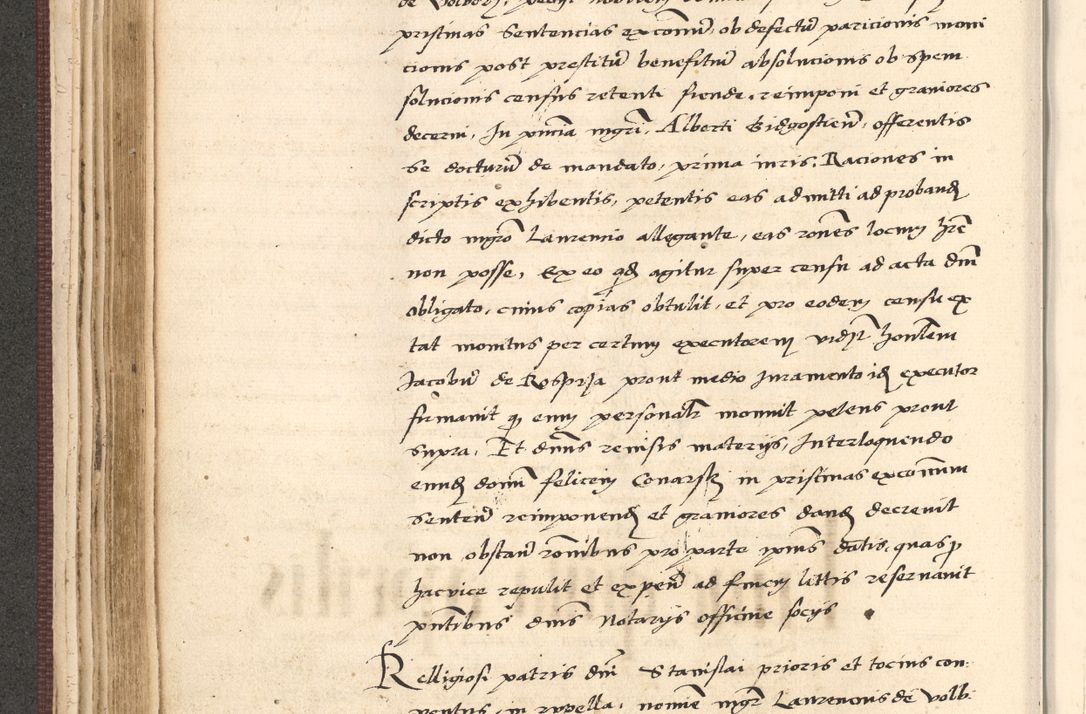 pristinas sentencias excom̄, ob defectū paricionis moni
cionis post prestitū benefitiū absolucionis ob spem
solucionis census retenti fiende, reimponi et graviores
decerni, In pn̄cia mgrī, Alberti Bidgostien̄, offerentis
se docturū de mandato, prima iuris, Raciones in
scriptis exhibentis, petentis eas admitti ad proband
dicto mgrō Laurencio allegante, eas ron̄es locum hr̄e
non posse, Ex eo qd agitur super censu ad acta dn̄i
obligato, cuius copias obtulit, et pro eodem censu ex
tat monitus per certum executorem vidz honl̄em
Jacobū de Rosprza prout medio Juramento id executor
firmavit q eum personalr monuit petens prout
supra, Et dn̄us revisis materiis, Interloquendo
eund domū felicem Conarsk in pristinas excom̄um
senten̄ reimponend et graviores dand decrevit
non obstan̄ ron̄ibus pro parte ipius datis, quas p
hac vice repulit et expen̄ ad finem littis reservavit
pn̄tibus dn̄is Notariis officiū sociis
Relligiosi patris dn̄i Stanislai prioris et tocius con
ventus, in capella, nomine mgr Laurencius de Volb